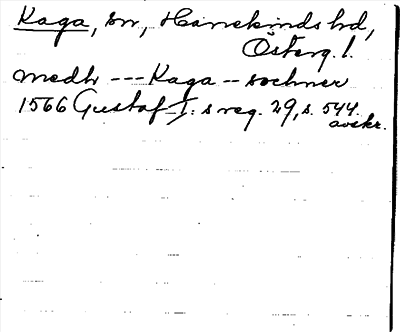 Kaga, sn, Hanekinds hd,
Österg. l.
medh --- Kaga -- sochner
1566 Gustaf I: s reg. 29, s. 544.
avskr.